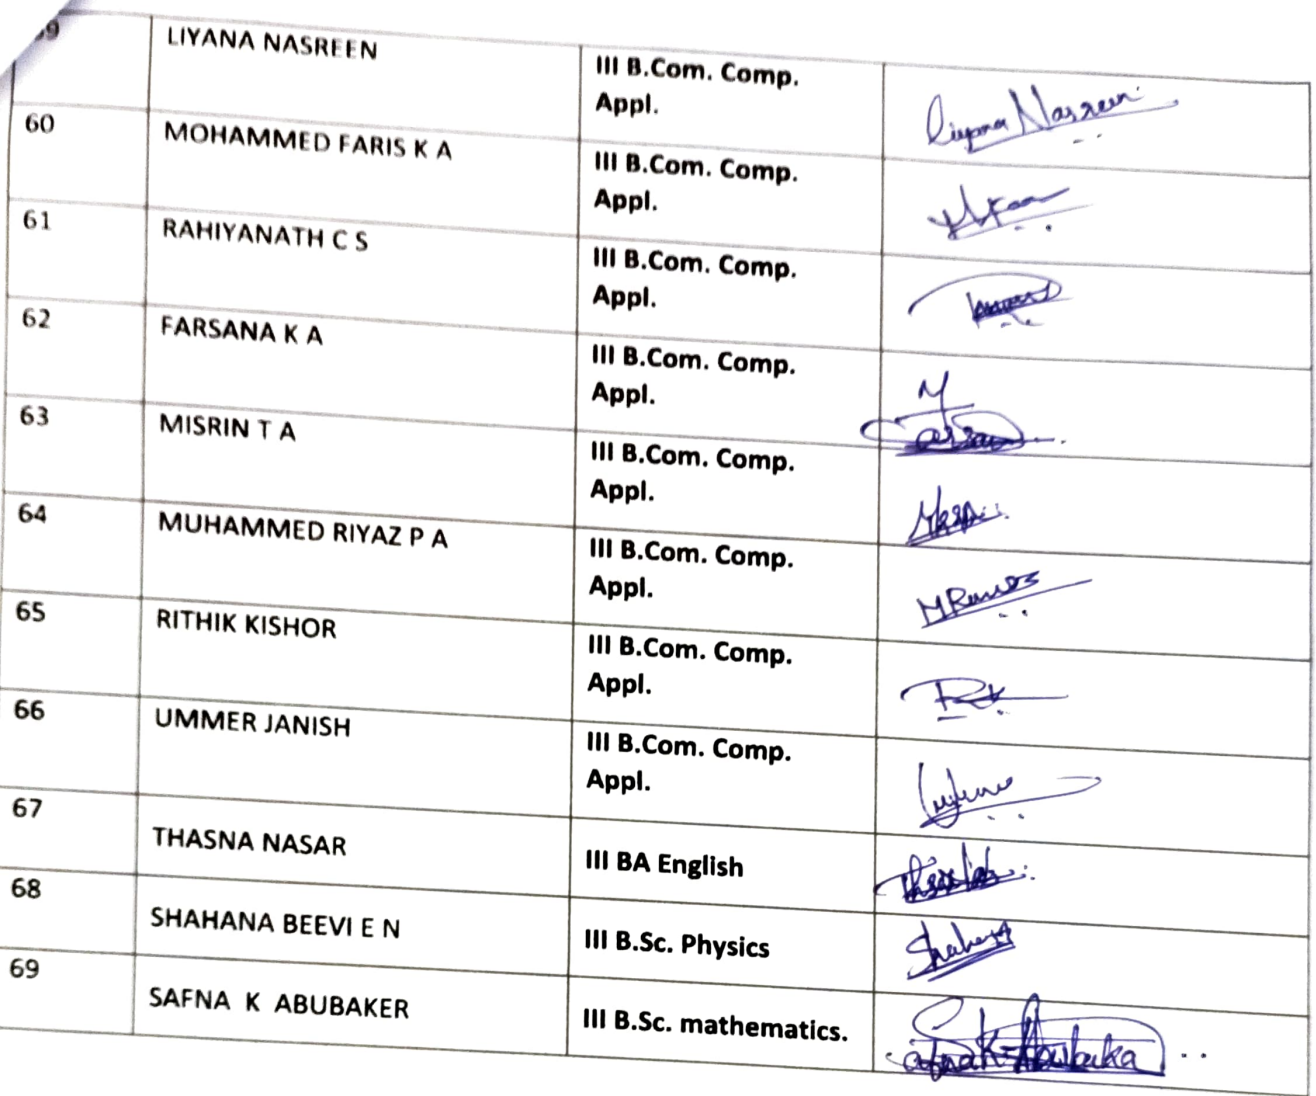 LIYANA NASREEN III B.Com. Comp.
Appl. Liyana Nasreen
60 MOHAMMED FARIS K A III B.Com. Comp.
Appl.
61 RAHIYANATH C S III B.Com. Comp.
Appl.
62 FARSANA K A III B.Com. Comp.
Appl.
63 MISRIN T A III B.Com. Comp.
Appl.
64 MUHAMMED RIYAZ P A III B.Com. Comp.
Appl.
65 RITHIK KISHOR III B.Com. Comp.
Appl.
66 UMMER JANISH III B.Com. Comp.
Appl.
67 THASNA NASAR III BA English
68 SHAHANA BEEVI E N III B.Sc. Physics
69 SAFNA K ABUBAKER III B.Sc. mathematics.